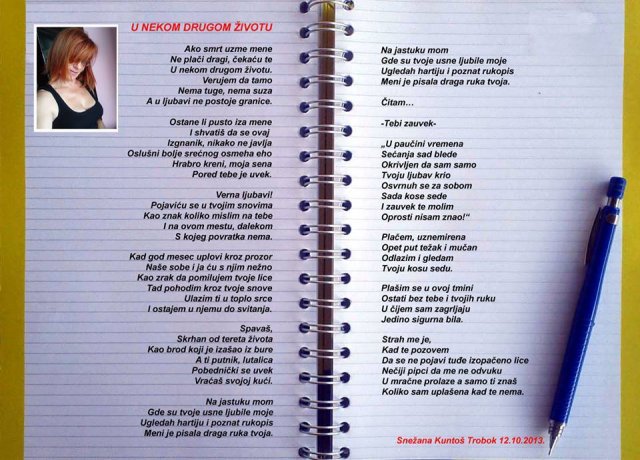 U NEKOM DRUGOM ŽIVOTU
Ako smrt uzme mene
Ne plači dragi, čekaću te
U nekom drugom životu.
Verujem da tamo
Nema tuge, nema suza
A u ljubavi ne postoje granice.
Ostane li pusto iza mene
I shvatiš da se ovaj
Izgnanik, nikako ne javlja
Oslušni bolje srećnog osmeha eho
Hrabro kreni, moja sena
Pored tebe je uvek.
Verna ljubavi!
Pojaviću se u tvojim snovima
Kao znak koliko mislim na tebe
I na ovom mestu, dalekom
S kojeg povratka nema.
Kad god mesec uplovi kroz prozor
Naše sobe i ja ću s njim nežno
Kao zrak da pomilujem tvoje lice
Tad pohodim kroz tvoje snove
Ulazim ti u toplo srce
I ostajem u njemu do svitanja.
Spavaš,
Skrhan od tereta života
Kao brod koji je izašao iz bure
A ti putnik, lutalica
Pobednički se uvek
Vraćaš svojoj kući.
Na jastuku mom
Gde su tvoje usne ljubile moje
Ugledah hartiju i poznat rukopis
Meni je pisala draga ruka tvoja.
Na jastuku mom
Gde su tvoje usne ljubile moje
Ugledah hartiju i poznat rukopis
Meni je pisala draga ruka tvoja.
Čitam…
-Tebi zauvek-
„U paučini vremena
Sećanja sad blede
Okrivljen da sam samo
Tvoju ljubav krio
Osvrnuh se za sobom
Sada kose sede
I zauvek te molim
Oprosti nisam znao!“
Plačem, uznemirena
Opet put težak i mučan
Odlazim i gledam
Tvoju kosu sedu.
Plašim se u ovoj tmini
Ostati bez tebe i tvojih ruku
U čijem sam zagrljaju
Jedino sigurna bila.
Strah me je,
Kad te pozovem
Da se ne pojavi tuđe izopačeno lice
Nečiji pipci da me ne odvuku
U mračne prolaze a samo ti znaš
Koliko sam uplašena kad te nema.
Snežana Kuntoš Trobok 12.10.2013.